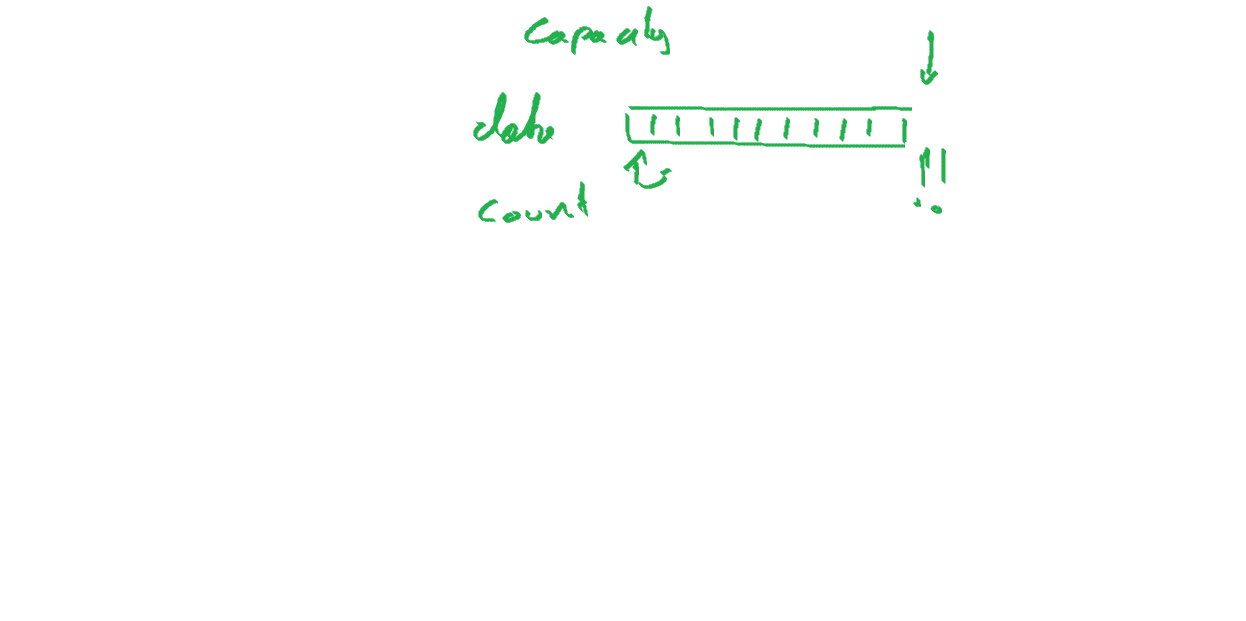 Capacity
data
count
!!